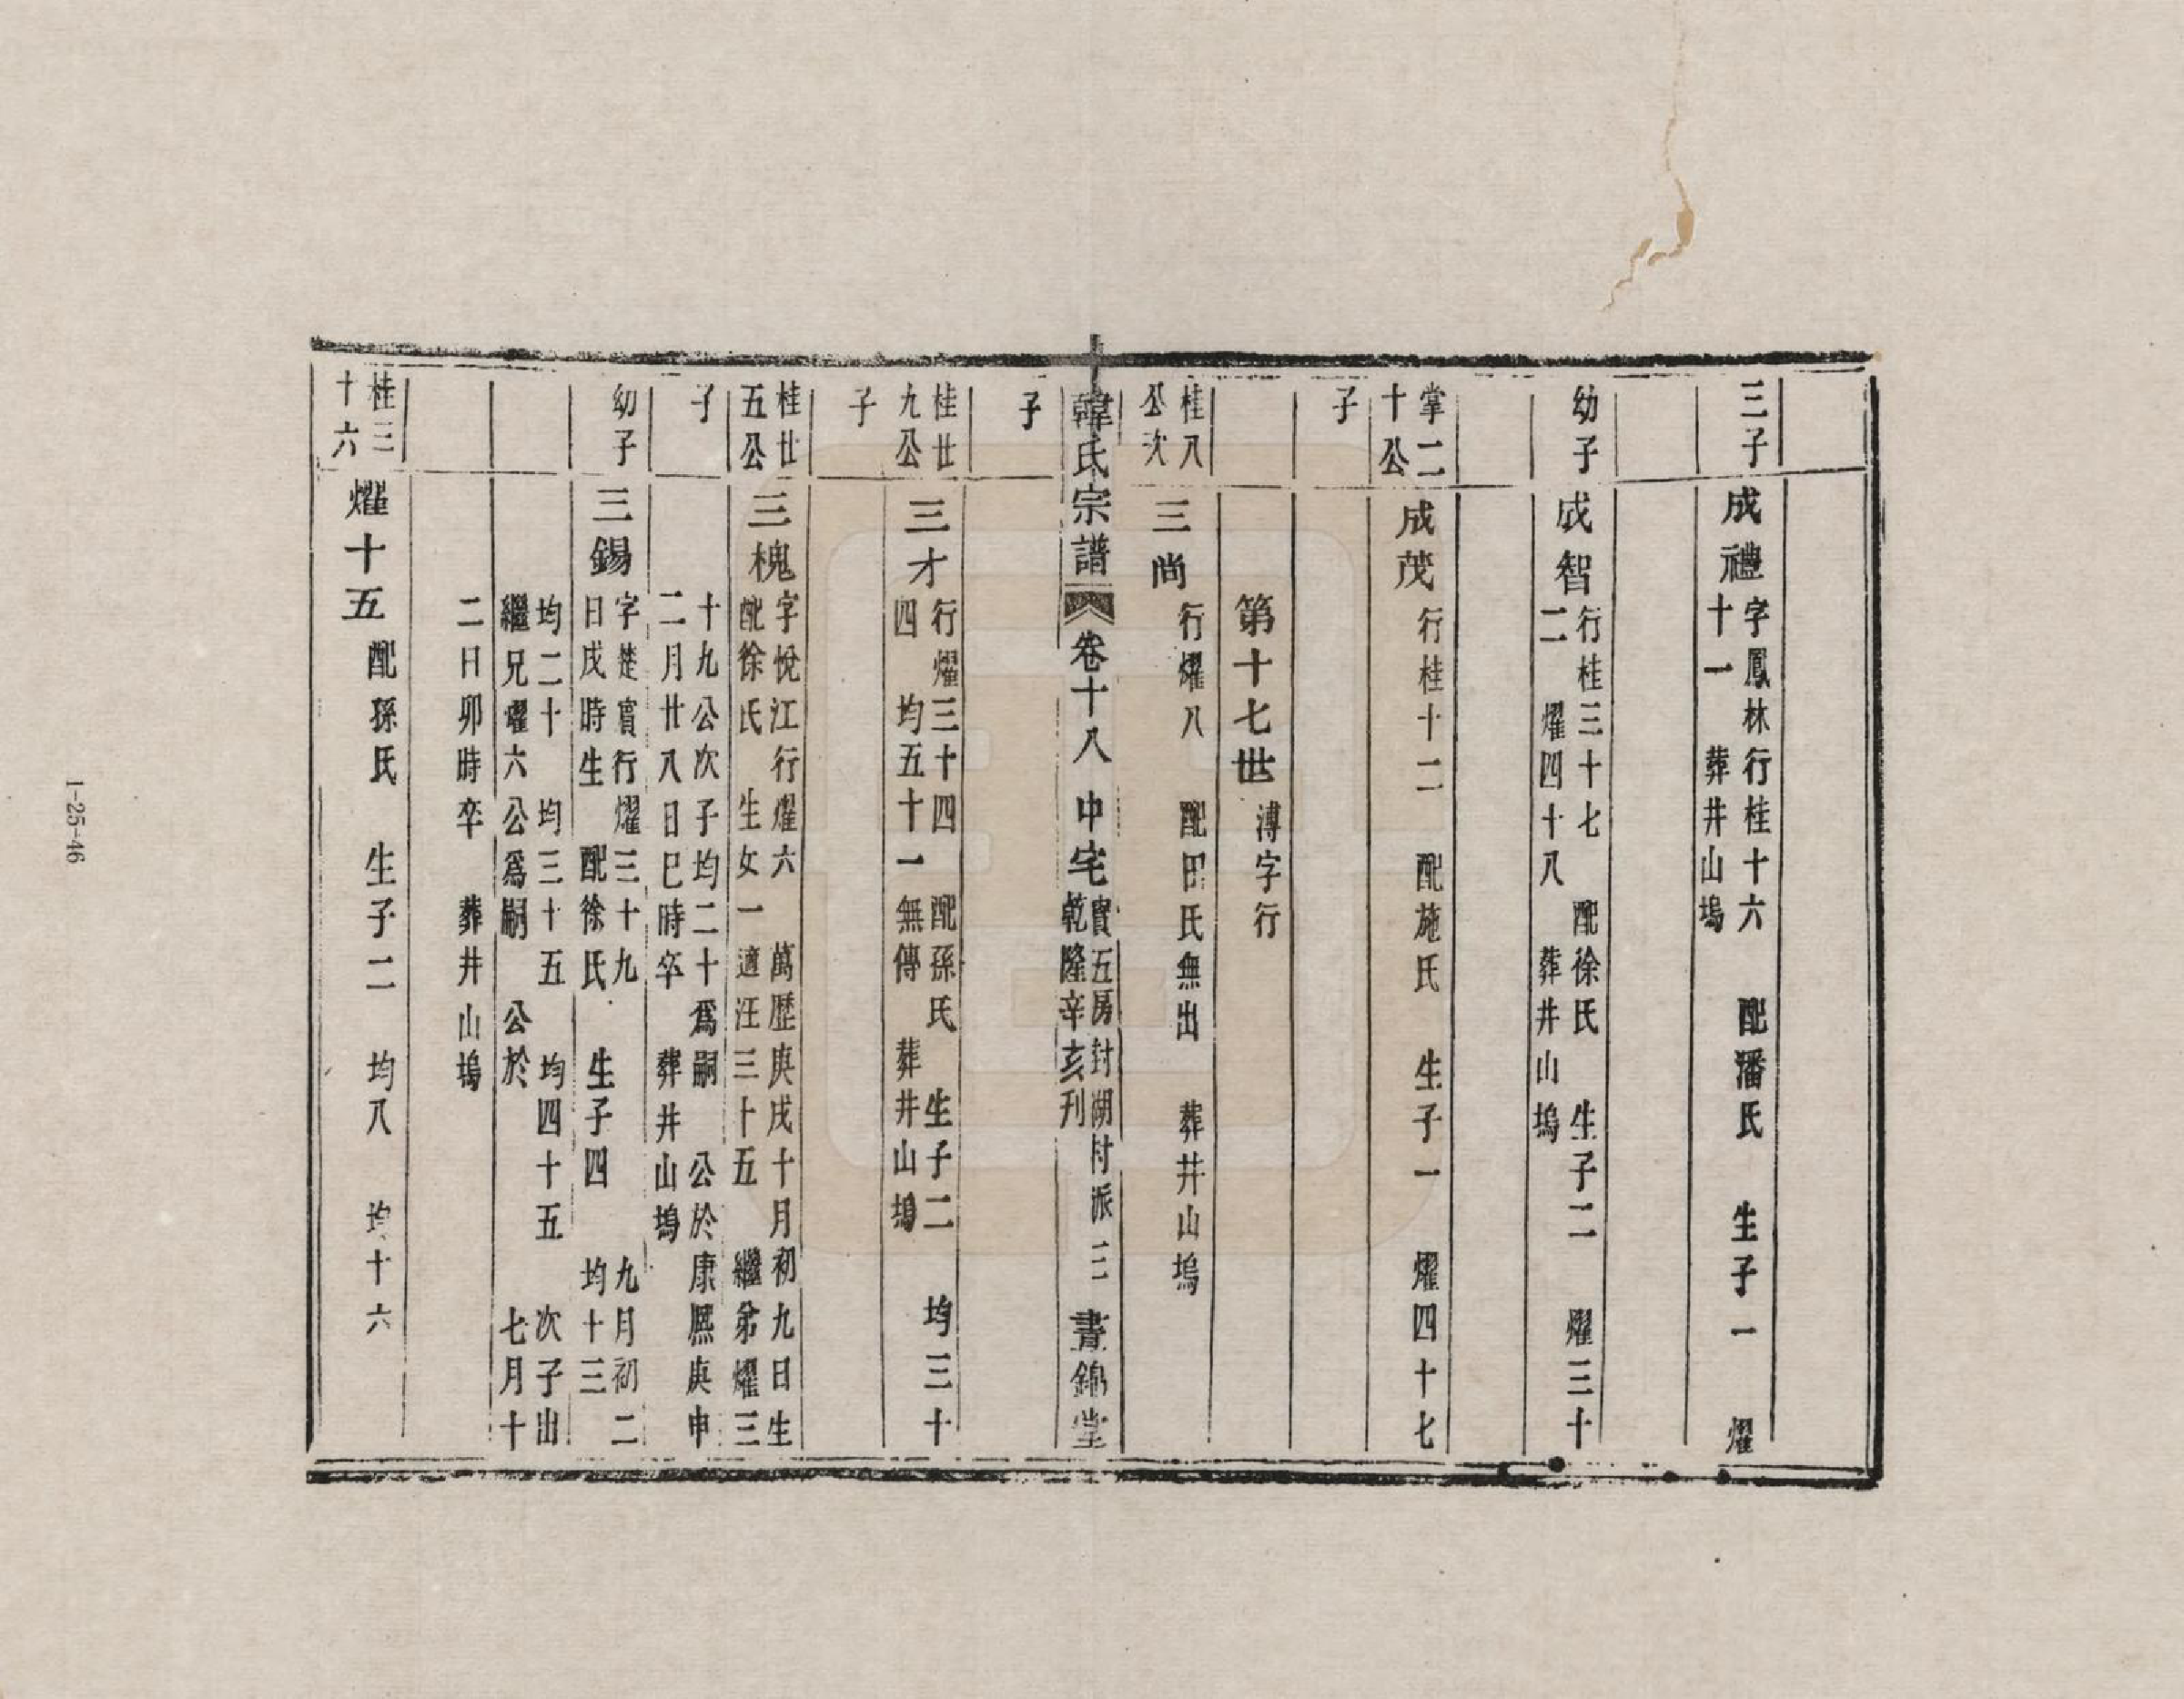 三子
成禮
字鳳林行桂十六 配潘氏 生子一 燿
十一 葬井山塢
幼子
成智
行桂三十七 配徐氏 生子二 燿三十
二 燿四十八 葬井山塢
掌二
十公
子
成茂
行桂十二 配施氏 生子一 燿四十七
第十七世
溥字行
桂八
公次
子
三尚
行燿八 配田氏無出 葬井山塢
韓氏宗譜 卷十八 中宅
實五房封湖村派 三
乾隆辛亥刊
晝錦堂
桂廿
九公
子
三才
行燿三十四 配孫氏 生子二 均三十
四 均五十一無傳 葬井山塢
桂廿
五公
子
三槐
字悅江行燿六 萬歷庚戌十月初九日生
配徐氏 生女一適汪三十五 繼弟燿三
十九公次子均二十爲嗣 公於康熈庚申
二月廿八日巳時卒 葬井山塢
幼子
三錫
字楚賓行燿三十九 九月初二
日戌時生 配徐氏 生子四 均十三
均二十 均三十五 均四十五 次子出
繼兄燿六公爲嗣 公於 七月十
二日卯時卒 葬井山塢
桂三
十六
燿十五
配孫氏 生子二 均八 均十六
1-25-46